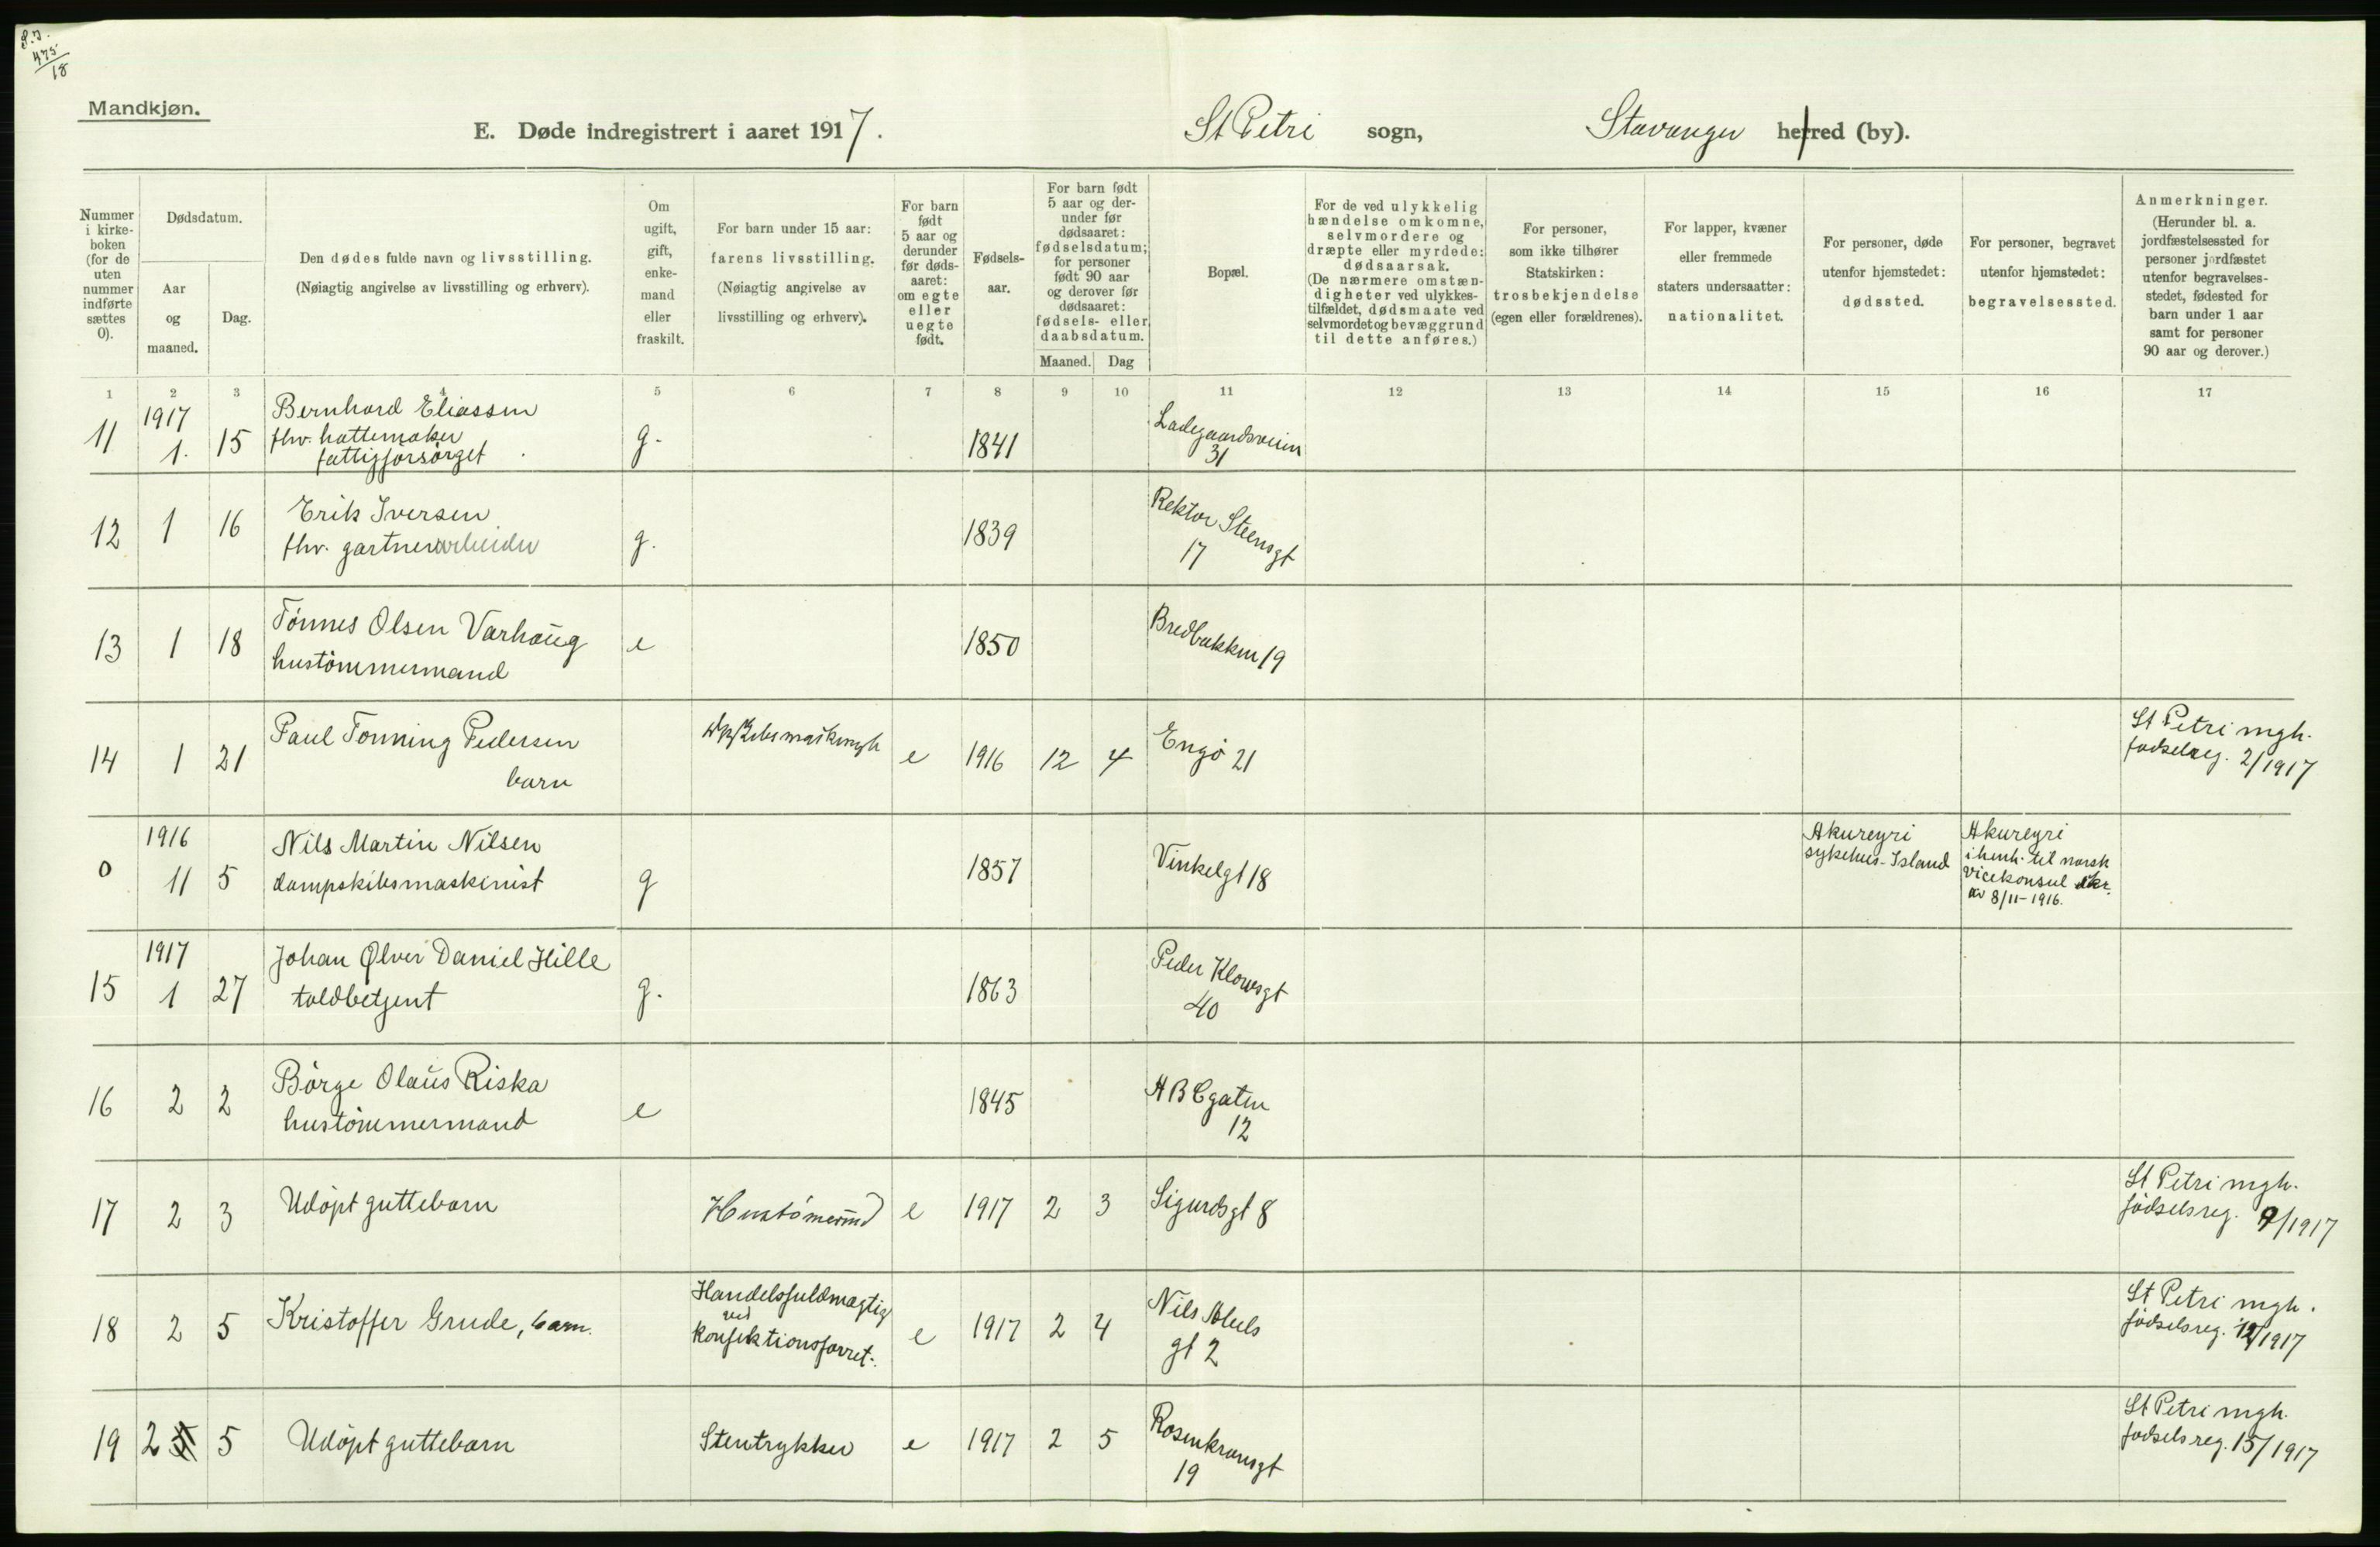 S.J.
475/18
Mandkjøn.
E. Døde indregistrert i aaret 1917.
St Petri sogn,
Stavanger herred (by).
Nummer i kirke-boken (for de uten nummer indførte sættes 0).
Dødsdatum.
Aar og maaned.
Dag.
Den dødes fulde navn og livsstilling.
(Nøiagtig angivelse av livsstilling og erhverv).
Om ugift, gift, enke-mand eller fraskilt.
For barn under 15 aar: farens livsstilling.
(Nøiagtig angivelse av livsstilling og erhverv).
For barn født 5 aar og derunder før døds-aaret: om egte eller uegte født.
Fødsels-aar.
For barn født 5 aar og der-under før dødsaaret: fødselsdatum; for personer født 90 aar og derover før dødsaaret: fødsels- eller daabsdatum.
Maaned.
Dag
Bopæl.
For de ved ulykkelig hændelse omkomne, selvmordere og dræpte eller myrdede: dødsaarsak.
(De nærmere omstæn-digheter ved ulykkes-tilfældet, dødsmaate ved selvmordet og bevæggrund til dette anføres.)
For personer, som ikke tilhører Statskirken: trosbekjendelse (egen eller forældrenes).
For lapper, kvæner eller fremmede staters undersaatter: nationalitet.
For personer, døde utenfor hjemstedet: dødssted.
For personer, begravet utenfor hjemstedet: begravelsessted.
Anmerkninger.
(Herunder bl. a. jordfæstelsessted for personer jordfæstet utenfor begravelses-stedet, fødested for barn under 1 aar samt for personer 90 aar og derover.)
1 2 3 4 5 6 7 8 9 10 11 12 13 14 15 16 17
11 1917 1. 15 Bernhard Eliassen fhv. hattemaker fattigforsørget g. 1841 Ladegaardsveien 31
12 1 16 Erik Iversen fhv. gartnerarbeider g. 1839 Rektor Steensgt 17
13 1 18 Tönnes Olsen Varhaug hustömmermand e 1850 Bredbakken 19
14 1 21 Paul Tonning Pedersen barn e 1916 12 4 Engö 21 St Petri mgh. fødselsreg. 2/1917
0 1916 11 5 Nils Martin Nilsen dampskibsmaskinist g 1857 Vinkelgt 18 Akureyri sykehus - Island Akureyri i henh. til norsk vicekonsul skr. av 8/11-1916.
15 1917 1 27 Johan Ølver Daniel Hille toldbetjent g. 1863 Peder Klowsgt 40
16 2 2 Börge Olaus Riska hustömmermand e 1845 ABCgaten 12
17 2 3 Udöpt guttebarn Hustömermd e 1917 2 3 Sigurdsgt 8 St Petri mgh. födselsreg. 9/1917
18 2 5 Kristoffer Grude, barn. Handelsfuldmægtig ved konfektionsforret. e 1917 2 4 Nils Abels gt 2 St Petri mgh. födselsreg. 12/1917
19 2 5 Udöpt guttebarn Stentrykker e 1917 2 5 Rosenkransgt 19 St Petri mgh. fødselsreg. 15/1917